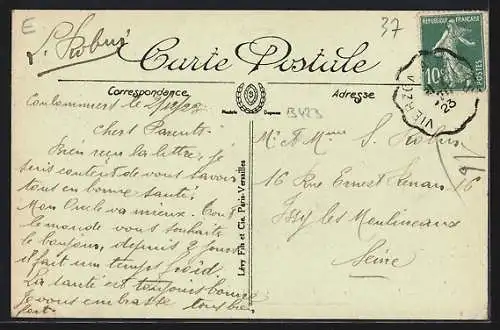 E
37
S. Robin
Carte Postale
RÉPUBLIQUE FRANÇAISE
10c
POSTES
VIERZO
23
Correspondance
Adresse
Modèle
B423
Coulommiers le
Chers Parents
Bien reçu ta lettre, Je
suis content de vous savoir
tout en bonne santé.
Mon Oncle va mieux. Tout
le monde vous souhaite
le bonjour, depuis 2 jours
il fait un temps froid.
La santé est toujours bonne
Je vous embrasse tous bien
fort.
Lévy Fils et Cie, Paris-Versailles
Mr & Mme S. Robin
16 Rue Ernest Renan 16
Issy les Moulineaux
Seine